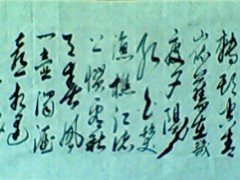 轉頭空青
山依舊在幾
度夕陽
紅白髮
漁樵江渚
上慣看秋
月春風
一壺濁酒
喜相逢